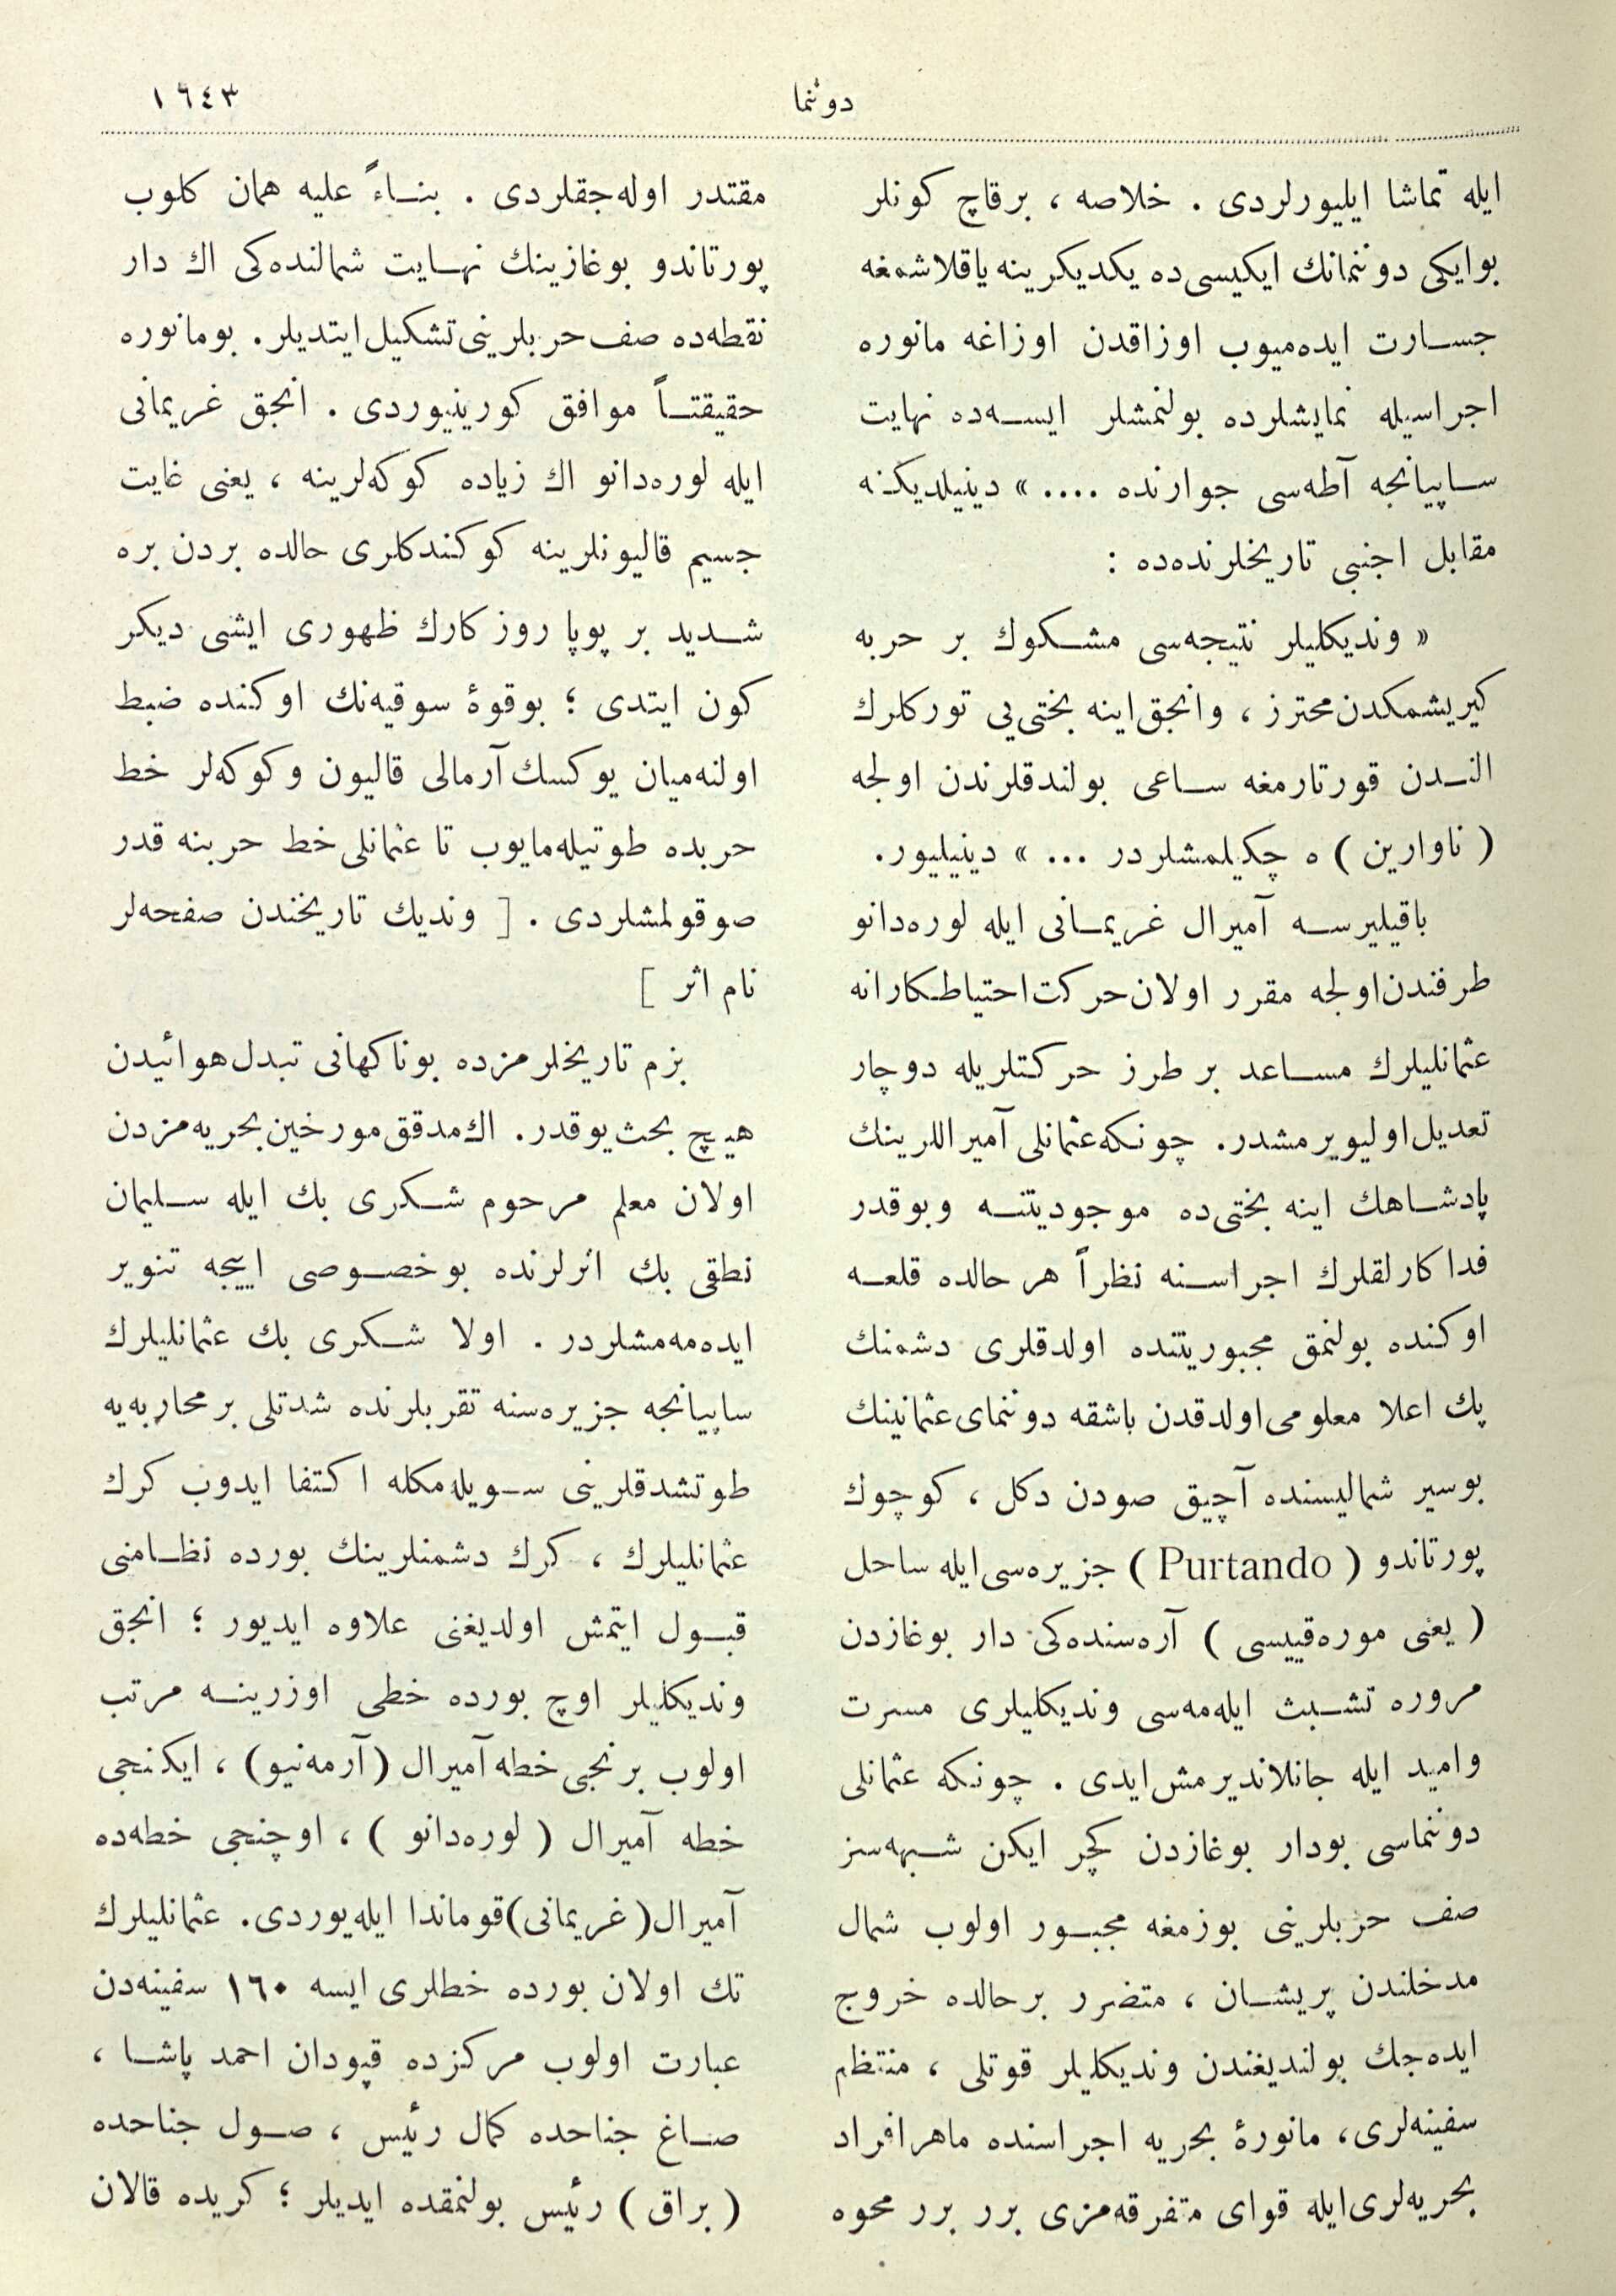 دوننما
١٦٤٣
ایله تماشا ایلیورلردی . خلاصه ، برقاچ کونلر
بوایکی دوننمانك ایکیسی‌ده یکدیکرینه یاقلاشمغه
جسارت ایده‌میوب اوزاقدن اوزاغه مانوره
اجراسیله نمایشلرده بولنمشلر ایسه‌ده نهایت
ساپیانجه آطه‌سی جوارنده .... » دینیلدیکنه
مقابل اجنبی تاریخلرنده‌ده :
« وندیکلیلر نتیجه‌سی مشکوك بر حربه
کیریشمکدن محترز ، وانجق اینه بختی‌یی تورکلرك
الندن قورتارمغه ساعی بولندقلرندن اولجه
( ناوارین ) ه چکیلمشلردر ... » دینیلیور.
باقیلیرسه آمیرال غریمانی ایله لوره‌دانو
طرفندن اولجه مقرر اولان حرکت احتیاطکارانه
عثمانلیلرك مساعد بر طرز حرکتلریله دوچار
تعدیل اولیویرمشدر. چونکه عثمانلی آمیراللرینك
پادشاهك اینه بختی‌ده موجودیتنه وبوقدر
فداکارلقلرك اجراسنه نظراً هر حالده قلعه
اوکنده بولنمق مجبوریتنده اولدقلری دشمنك
پك اعلا معلومی اولدقدن باشقه دوننمای عثمانینك
بوسیر شمالیسنده آچیق صودن دکل ، کوچوك
پورتاندو ( Purtando ) جزیره‌سی ایله ساحل
( یعنی موره‌قییسی ) آره‌سنده‌کی دار بوغازدن
مروره تشبث ایله‌مه‌سی وندیکلیلری مسرت
وامید ایله جانلاندیرمش ایدی . چونکه عثمانلی
دوننماسی بودار بوغازدن کچر ایکن شبهه‌سز
صف حربلرینی بوزمغه مجبور اولوب شمال
مدخلندن پریشان ، متضرر برحالده خروج
ایده‌جك بولندیغندن وندیکلیلر قوتلی ، منتظم
سفینه‌لری، مانورۀ بحریه اجراسنده ماهر افراد
بحریه‌لری ایله قوای متفرقه‌مزی برر برر محوه
مقتدر اوله‌جقلردی . بناءً علیه همان کلوب
پورتاندو بوغازینك نهایت شمالنده‌کی اك دار
نقطه‌ده صف حربلرینی تشکیل ایتدیلر. بومانوره
حقیقتاً موافق کورینیوردی . انجق غریمانی
ایله لوره‌دانو اك زیاده کوکه‌لرینه ، یعنی غایت
جسیم قالیونلرینه کوکندکلری حالده بردن بره
شدید بر پوپا روزکارك ظهوری ایشی دیکر
کون ایتدی ؛ بوقوۀ سوقیه‌نك اوکنده ضبط
اولنه‌میان یوکسك آرمالی قالیون وکوکه‌لر خط
حربده طوتیله‌مایوب تا عثمانلی خط حربنه قدر
صوقولمشلردی . [ وندیك تاریخندن صفحه‌لر
نام اثر ]
بزم تاریخلرمزده بوناکهانی تبدل هوائیدن
هیچ بحث یوقدر. اك مدقق مورخین بحریه‌مزدن
اولان معلم مرحوم شکری بك ایله سلیمان
نطقی بك اثرلرنده بوخصوصی اییجه تنویر
ایده‌مه‌مشلردر . اولا شکری بك عثمانلیلرك
ساپیانجه جزیره‌سنه تقربلرنده شدتلی بر محاربه‌یه
طوتشدقلرینی سویله‌مکله اکتفا ایدوب کرك
عثمانلیلرك ، کرك دشمنلرینك بورده نظامنی
قبول ایتمش اولدیغنی علاوه ایدیور ؛ انجق
وندیکلیلر اوچ بورده خطی اوزرینه مرتب
اولوب برنجی خطه آمیرال (آرمه‌نیو) ، ایکنجی
خطه آمیرال ( لوره‌دانو ) ، اوچنجی خطه‌ده
آمیرال (غریمانی) قوماندا ایله‌یوردی. عثمانلیلرك
تك اولان بورده خطلری ایسه ١٦٠ سفینه‌دن
عبارت اولوب مرکزده قپودان احمد پاشا ،
صاغ جناحده کمال رئیس ، صول جناحده
( براق ) رئیس بولنمقده ایدیلر ؛ کریده قالان